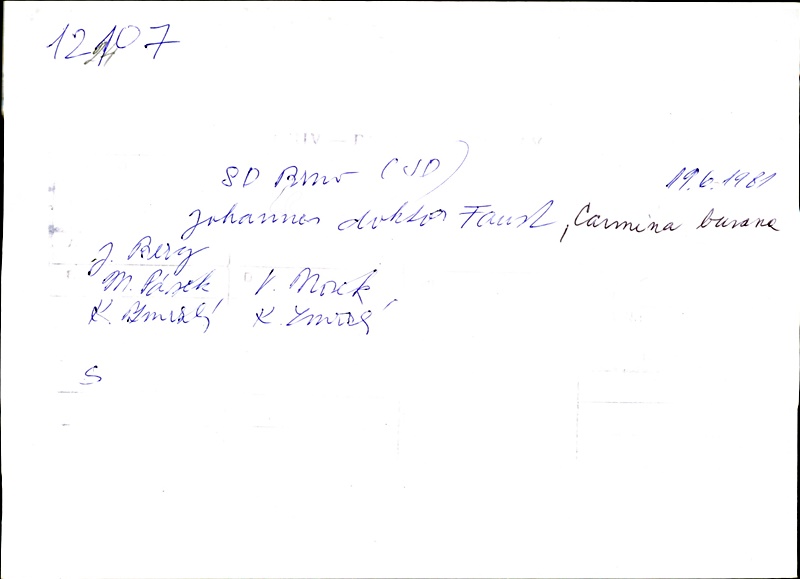 12107
SD Brno (JD)
19.6.1981
Johannes doktor Faust, Carmina burana
J. Berg
M. Pásek V. Nosek
K. Zmrzlý K. Zmrzlý
S